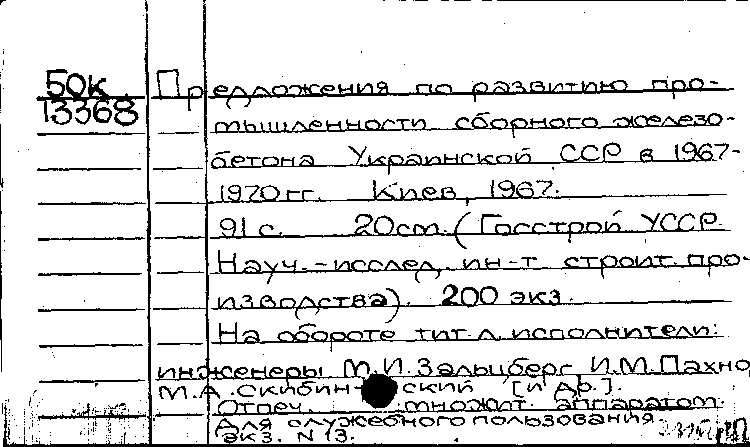 50к
13368
Предложения по развитию про-
мышленности сборного железо-
бетона Украинской ССР в 1967-
1970 гг. Киев, 1967.
91 с. 20 см. (Госстрой УССР.
Науч.-исслед. ин-т строит. про-
изводства). 200 экз.
На обороте тит. л. исполнители:
инженеры М.И. Зальцберг, И.М. Пахно,
М.А. Скибинский [и др.].
Отпеч. множит. аппаратом.
Для служебного пользования.
экз. N 13.